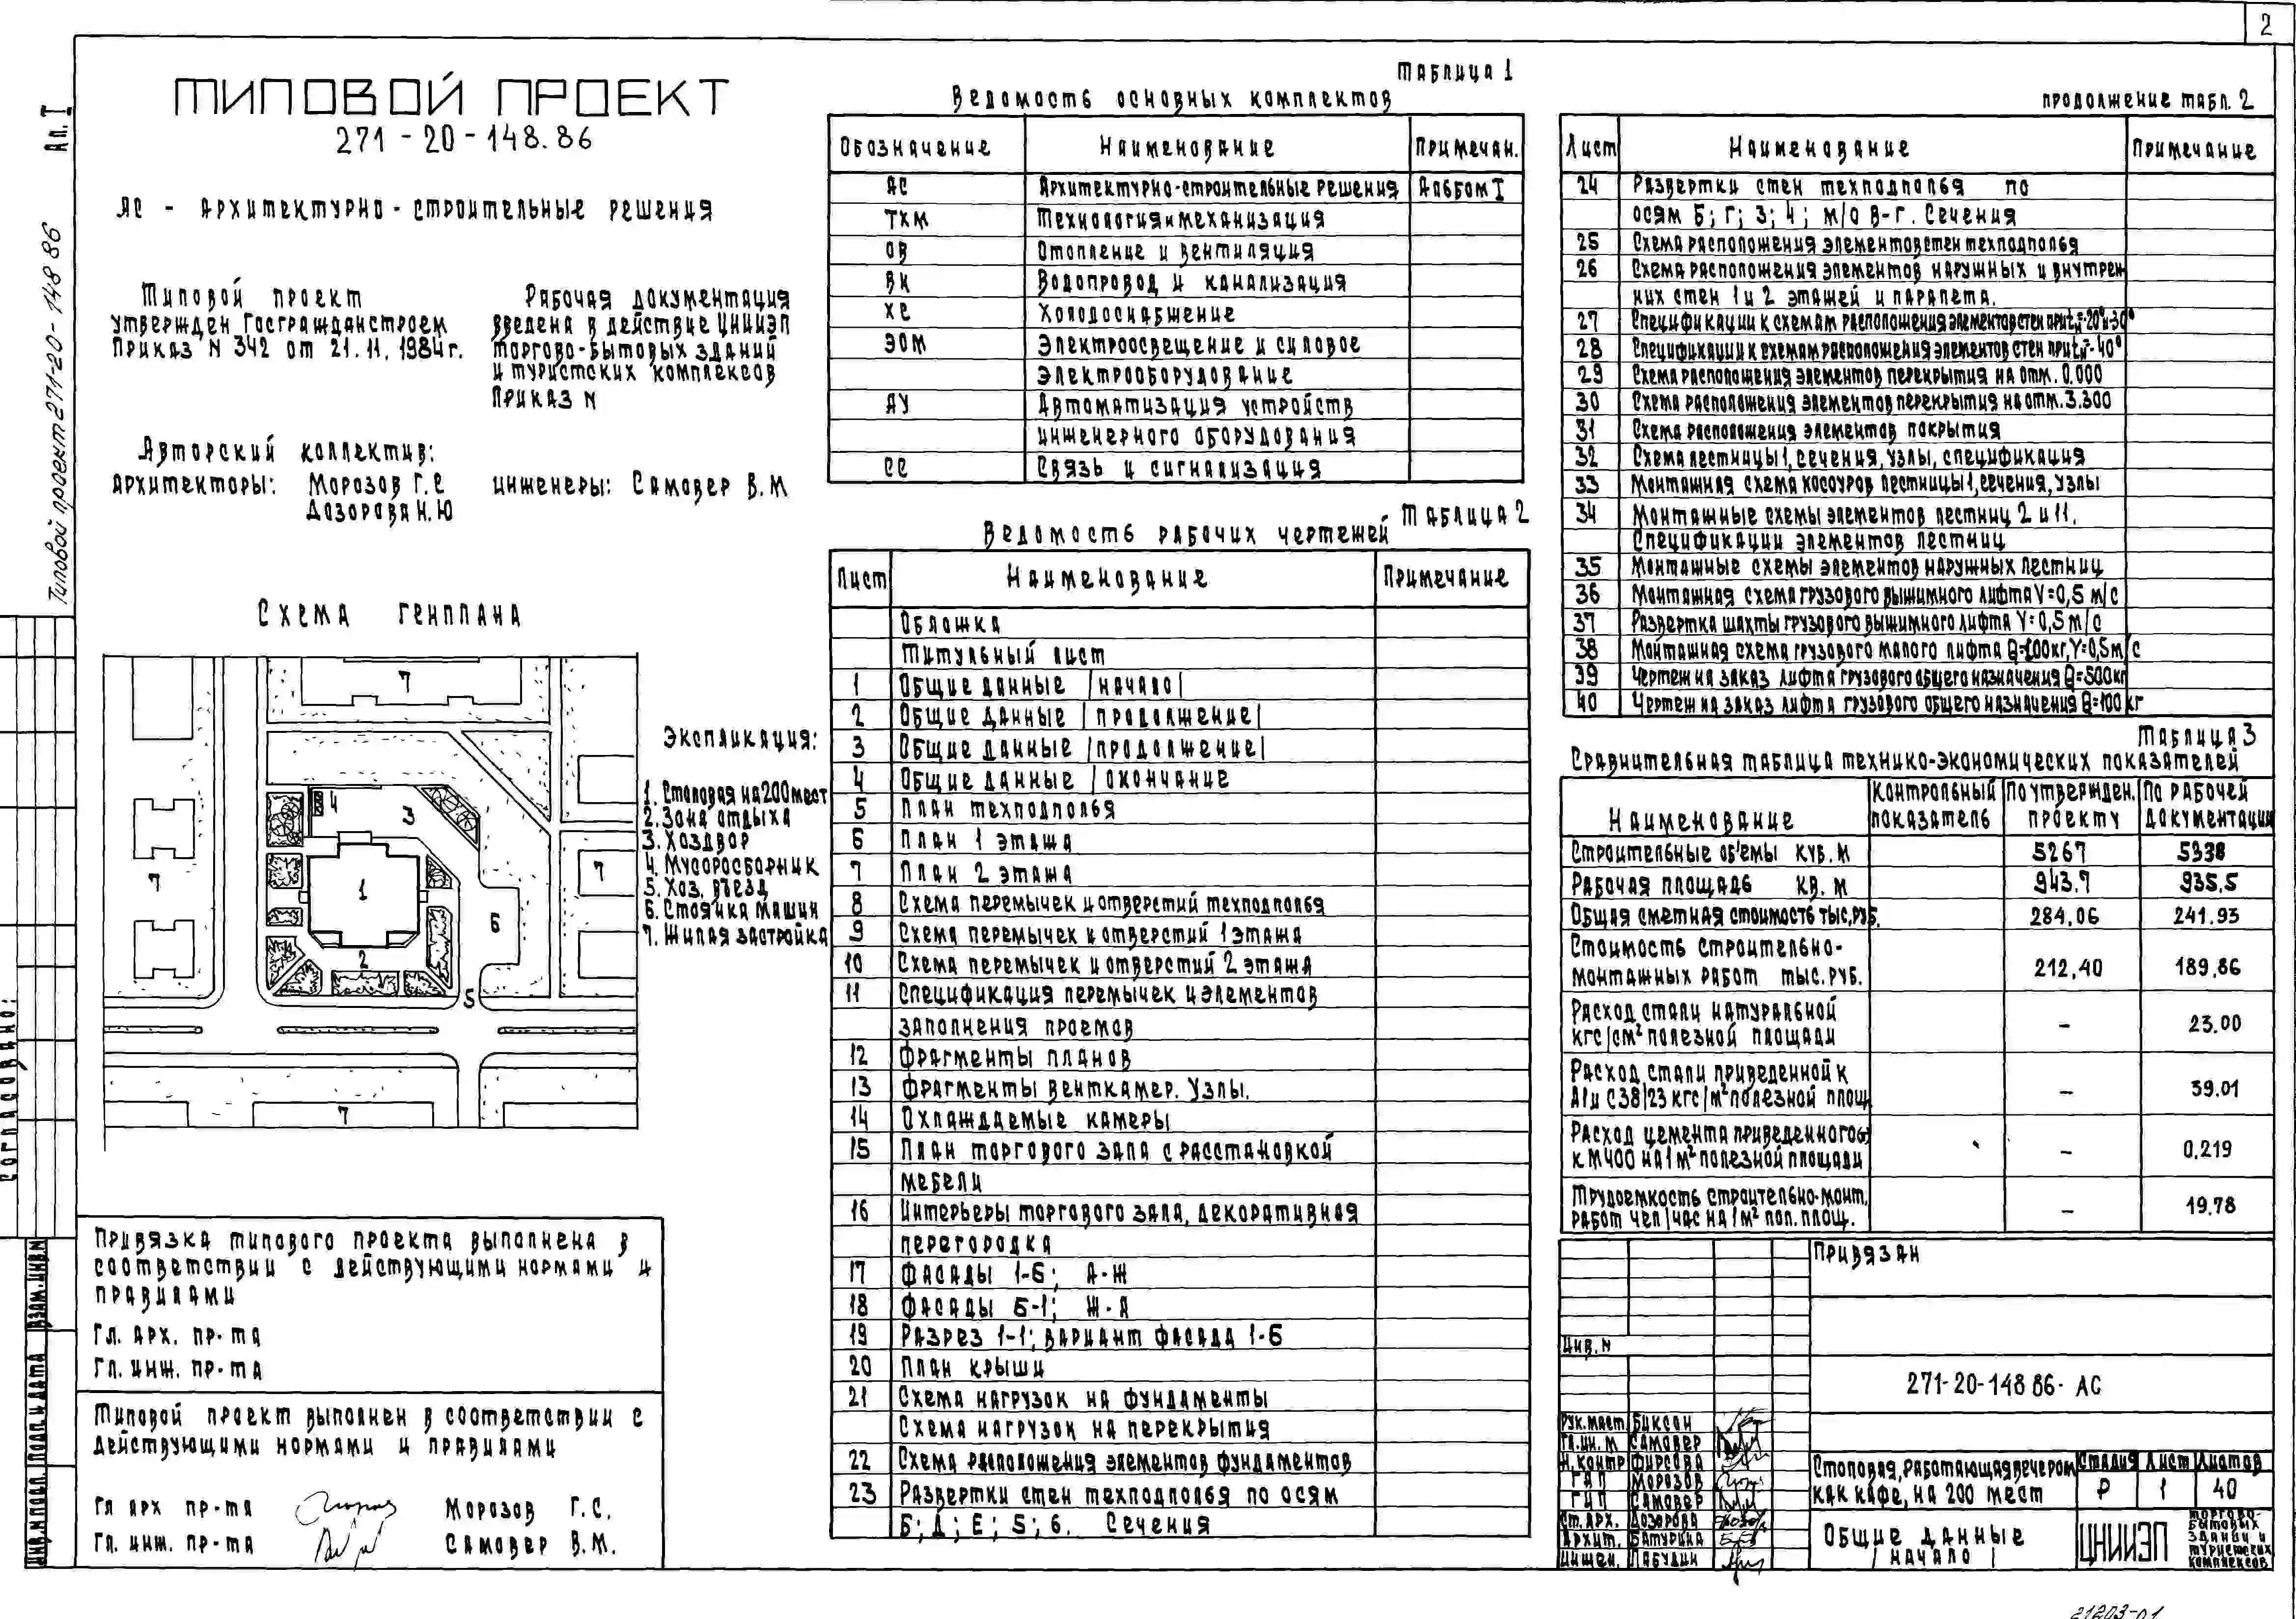 2
Ал. I
Типовой проект 271-20-148 86
ТИПОВОЙ ПРОЕКТ
271-20-148.86
АС - АРХИТЕКТУРНО-СТРОИТЕЛЬНЫЕ РЕШЕНИЯ
Типовой проект
утвержден Госгражданстроем
Приказ N 342 от 21.11.1984г.
Рабочая документация
введена в действие ЦНИИЭП
торгово-бытовых зданий
и туристских комплексов
Приказ N
Авторский коллектив:
Архитекторы: Морозов Г.С
Дозорова Н.Ю
инженеры: Самовер В.М
Схема генплана
7
4
3
7
1
7
6
2
5
7
Экспликация:
1. Столовая на 200 мест
2. Зона отдыха
3. Хоздвор
4. Мусоросборник
5. Хоз. въезд
6. Стоянка машин
7. Жилая застройка
Согласовано:
Взам. инв. N
Подп. и дата
Инв. N подл.
Привязка типового проекта выполнена в
соответствии с действующими нормами и
правилами
Гл. арх. пр-та
Гл. инж. пр-та
Типовой проект выполнен в соответствии с
действующими нормами и правилами
Гл арх пр-та Морозов Г.С.
Гл. инж. пр-та Самовер В.М.
Таблица 1
Ведомость основных комплектов
Обозначение Наименование Примечан.
АС Архитектурно-строительные решения Альбом I
ТХМ Технология и механизация
ОВ Отопление и вентиляция
ВК Водопровод и канализация
ХС Холодоснабжение
ЭОМ Электроосвещение и силовое
электрооборудование
АУ Автоматизация устройств
инженерного оборудования
СС Связь и сигнализация
Таблица 2
Ведомость рабочих чертежей
Лист Наименование Примечание
Обложка
Титульный лист
1 Общие данные |начало|
2 Общие данные |продолжение|
3 Общие данные |продолжение|
4 Общие данные |окончание
5 План техподполья
6 План 1 этажа
7 План 2 этажа
8 Схема перемычек и отверстий техподполья
9 Схема перемычек и отверстий 1 этажа
10 Схема перемычек и отверстий 2 этажа
11 Спецификация перемычек и элементов
заполнения проемов
12 Фрагменты планов
13 Фрагменты венткамер. Узлы.
14 Охлаждаемые камеры
15 План торгового зала с расстановкой
мебели
16 Интерьеры торгового зала, декоративная
перегородка
17 Фасады 1-6; А-Ж
18 Фасады 6-1; Ж-А
19 Разрез 1-1; вариант фасада 1-6
20 План крыши
21 Схема нагрузок на фундаменты
Схема нагрузок на перекрытия
22 Схема расположения элементов фундаментов
23 Развертки стен техподполья по осям
Б; Д; Е; 5; 6. Сечения
продолжение табл. 2
Лист Наименование Примечание
24 Развертки стен техподполья по
осям Б; Г; 3; 4; м/о В-Г. Сечения
25 Схема расположения элементов стен техподполья
26 Схема расположения элементов наружных и внутрен
них стен 1 и 2 этажей и парапета.
27 Спецификации к схемам расположения элементов стен при tн=-20°и-30°
28 Спецификации к схемам расположения элементов стен при tн=-40°
29 Схема расположения элементов перекрытия на отм. 0.000
30 Схема расположения элементов перекрытия на отм. 3.300
31 Схема расположения элементов покрытия
32 Схема лестницы 1, сечения, узлы, спецификация
33 Монтажная схема косоуров лестницы 1, сечения, узлы
34 Монтажные схемы элементов лестниц 2 и 11.
Спецификации элементов лестниц
35 Монтажные схемы элементов наружных лестниц
36 Монтажная схема грузового выжимного лифта V=0,5 м/с
37 Развертка шахты грузового выжимного лифта V=0,5 м/с
38 Монтажная схема грузового малого лифта Q=100кг, V=0,5м/с
39 Чертеж на заказ лифта грузового общего назначения Q=500кг
40 Чертеж на заказ лифта грузового общего назначения Q=100 кг
Таблица 3
Сравнительная таблица технико-экономических показателей
Наименование Контрольный показатель По утвержден. проекту По рабочей документации
Строительные об'емы куб. м 5267 5338
Рабочая площадь кв. м 943.7 935,5
Общая сметная стоимость тыс, руб. 284,06 241.93
Стоимость строительно-
монтажных работ тыс. руб. 212,40 189,86
Расход стали натуральной
кгс/см² полезной площади - 23.00
Расход стали приведенной к
А1 и С38/23 кгс/м² полезной площ. - 39.01
Расход цемента приведенного
к М400 на 1 м² полезной площади - 0,219
Трудоемкость строительно-монт.
работ чел/час на 1 м² пол. площ. - 19.78
Привязан
Инв. N
271-20-148 86- АС
Рук. маст. Биксон
Гл. ин. м Самовер
Н. контр Фирсова
ГАП Морозов
ГИП Самовер
Ст. арх. Дозорова
Архит. Батурина
Инжен. Лабудин
Столовая, работающая вечером
как кафе, на 200 мест
Стадия Лист Листов
Р 1 40
Общие данные
| начало |
ЦНИИЭП
торгово-
бытовых
зданий и
туристских
комплексов
21203-01